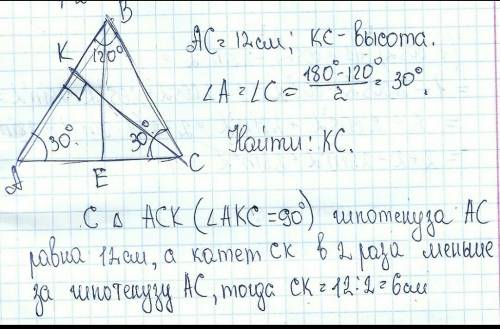 B
K
120°
30°
30°
A
E
C
AC = 12см; KC - высота.
∠A = ∠C = (180° - 120°)/2 = 30°.
Найти: KC.
С △ ACK (∠AKC = 90°) гипотенуза AC
равна 12см, а катет CK в 2 раза меньше
за гипотенузу AC, тогда CK = 12:2 = 6см